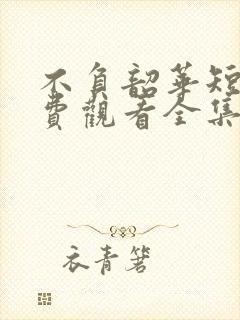 不負韶華短
費觀看全集
衣青箬